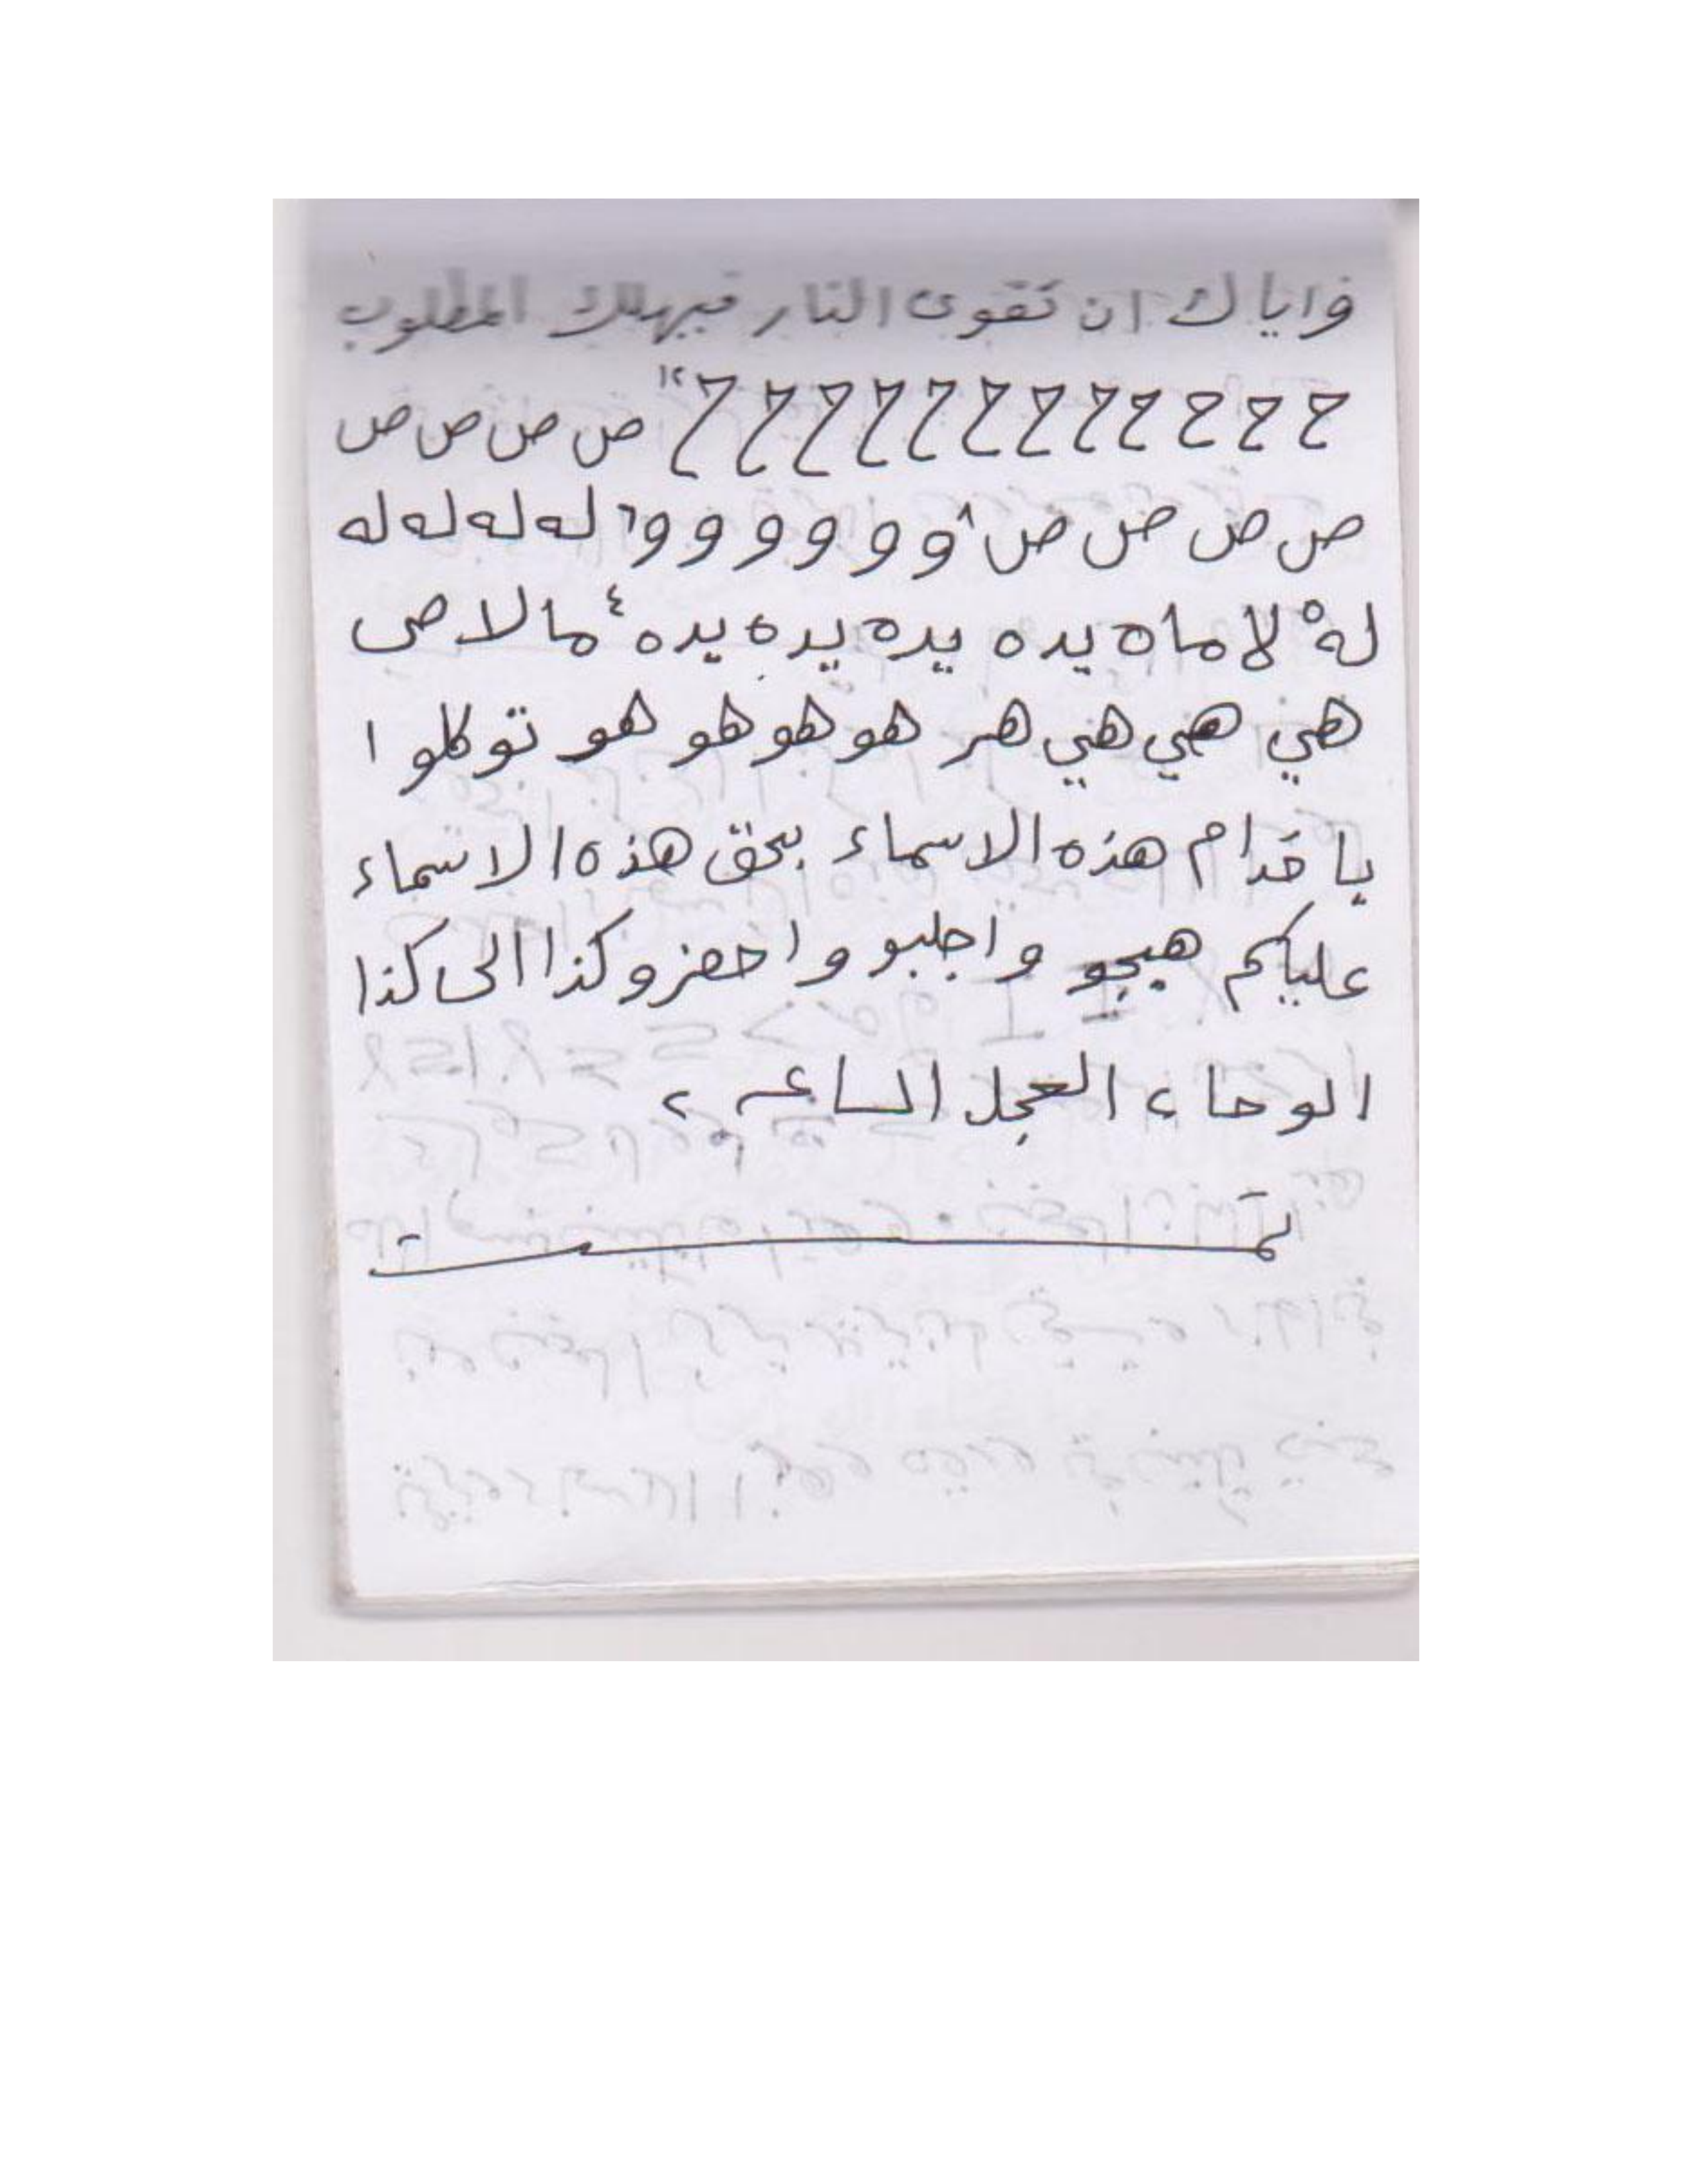 واياك ان تقوى النار فيهلك المطلوب
ح ح ح ح ح ح ح ح ح ح ح ح ١٢ ص ص ص ص
ص ص ص ص ٨ و و و و و و ٦ له له له له
له ٥ لا ماه يده يده يده يده ٤ مالا صى
هي هي هي هر هو هو هو هو توكلوا
يا خدام هذه الاسماء بحق هذه الاسماء
عليكم هيجو واجلبو واحضرو كذا الى كذا
الوحا ٢ العجل الساعه ٢
تمت